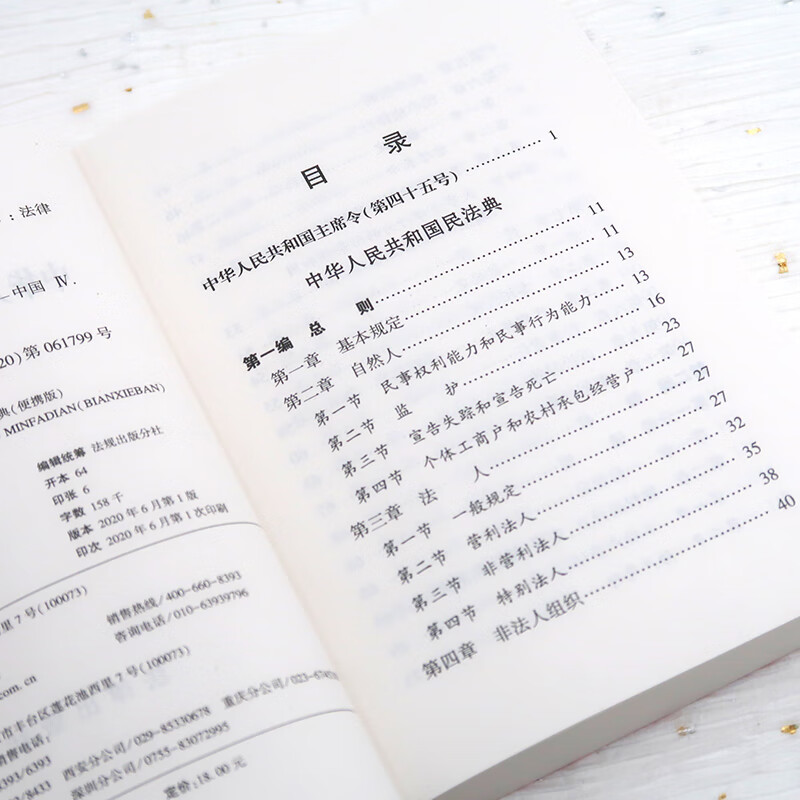 ：法律
—中国 Ⅳ.
20)第 061799 号
典(便携版)
MINFADIAN(BIANXIEBAN)
编辑统筹 法规出版分社
开本 64
印张 6
字数 158 千
版本 2020 年 6 月第 1 版
印次 2020 年 6 月第 1 次印刷
里 7 号(100073)
销售热线/400-660-8393
咨询电话/010-63939796
om.cn
市丰台区莲花池西里 7 号(100073)
销售电话：
8393/6393 西安分公司/029-85330678 重庆分公司/023-
深圳分公司/0755-83072995
定价:18.00 元
目 录
中华人民共和国主席令(第四十五号) …………… 1
中华人民共和国民法典
第一编 总 则 …………… 11
第一章 基本规定 …………… 11
第二章 自然人 …………… 13
第一节 民事权利能力和民事行为能力 …………… 13
第二节 监 护 …………… 16
第三节 宣告失踪和宣告死亡 …………… 23
第四节 个体工商户和农村承包经营户 …………… 27
第三章 法 人 …………… 27
第一节 一般规定 …………… 27
第二节 营利法人 …………… 32
第三节 非营利法人 …………… 35
第四节 特别法人 …………… 38
第四章 非法人组织 …………… 40